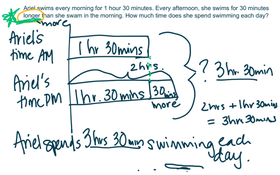 Ariel swims every morning for 1 hour 30 minutes. Every afternoon, she swims for 30 minutes
longer than she swam in the morning. How much time does she spend swimming each day?
more
Ariel's
time AM
1 hr 30 mins
2 hrs.
? 3 hr 30 min
Ariel's
time PM
1 hr. 30 mins
30 mins
more
2 hrs + 1 hr 30 mins
= 3 hr 30 mins
Ariel spends 3 hrs 30 min swimming each
day.